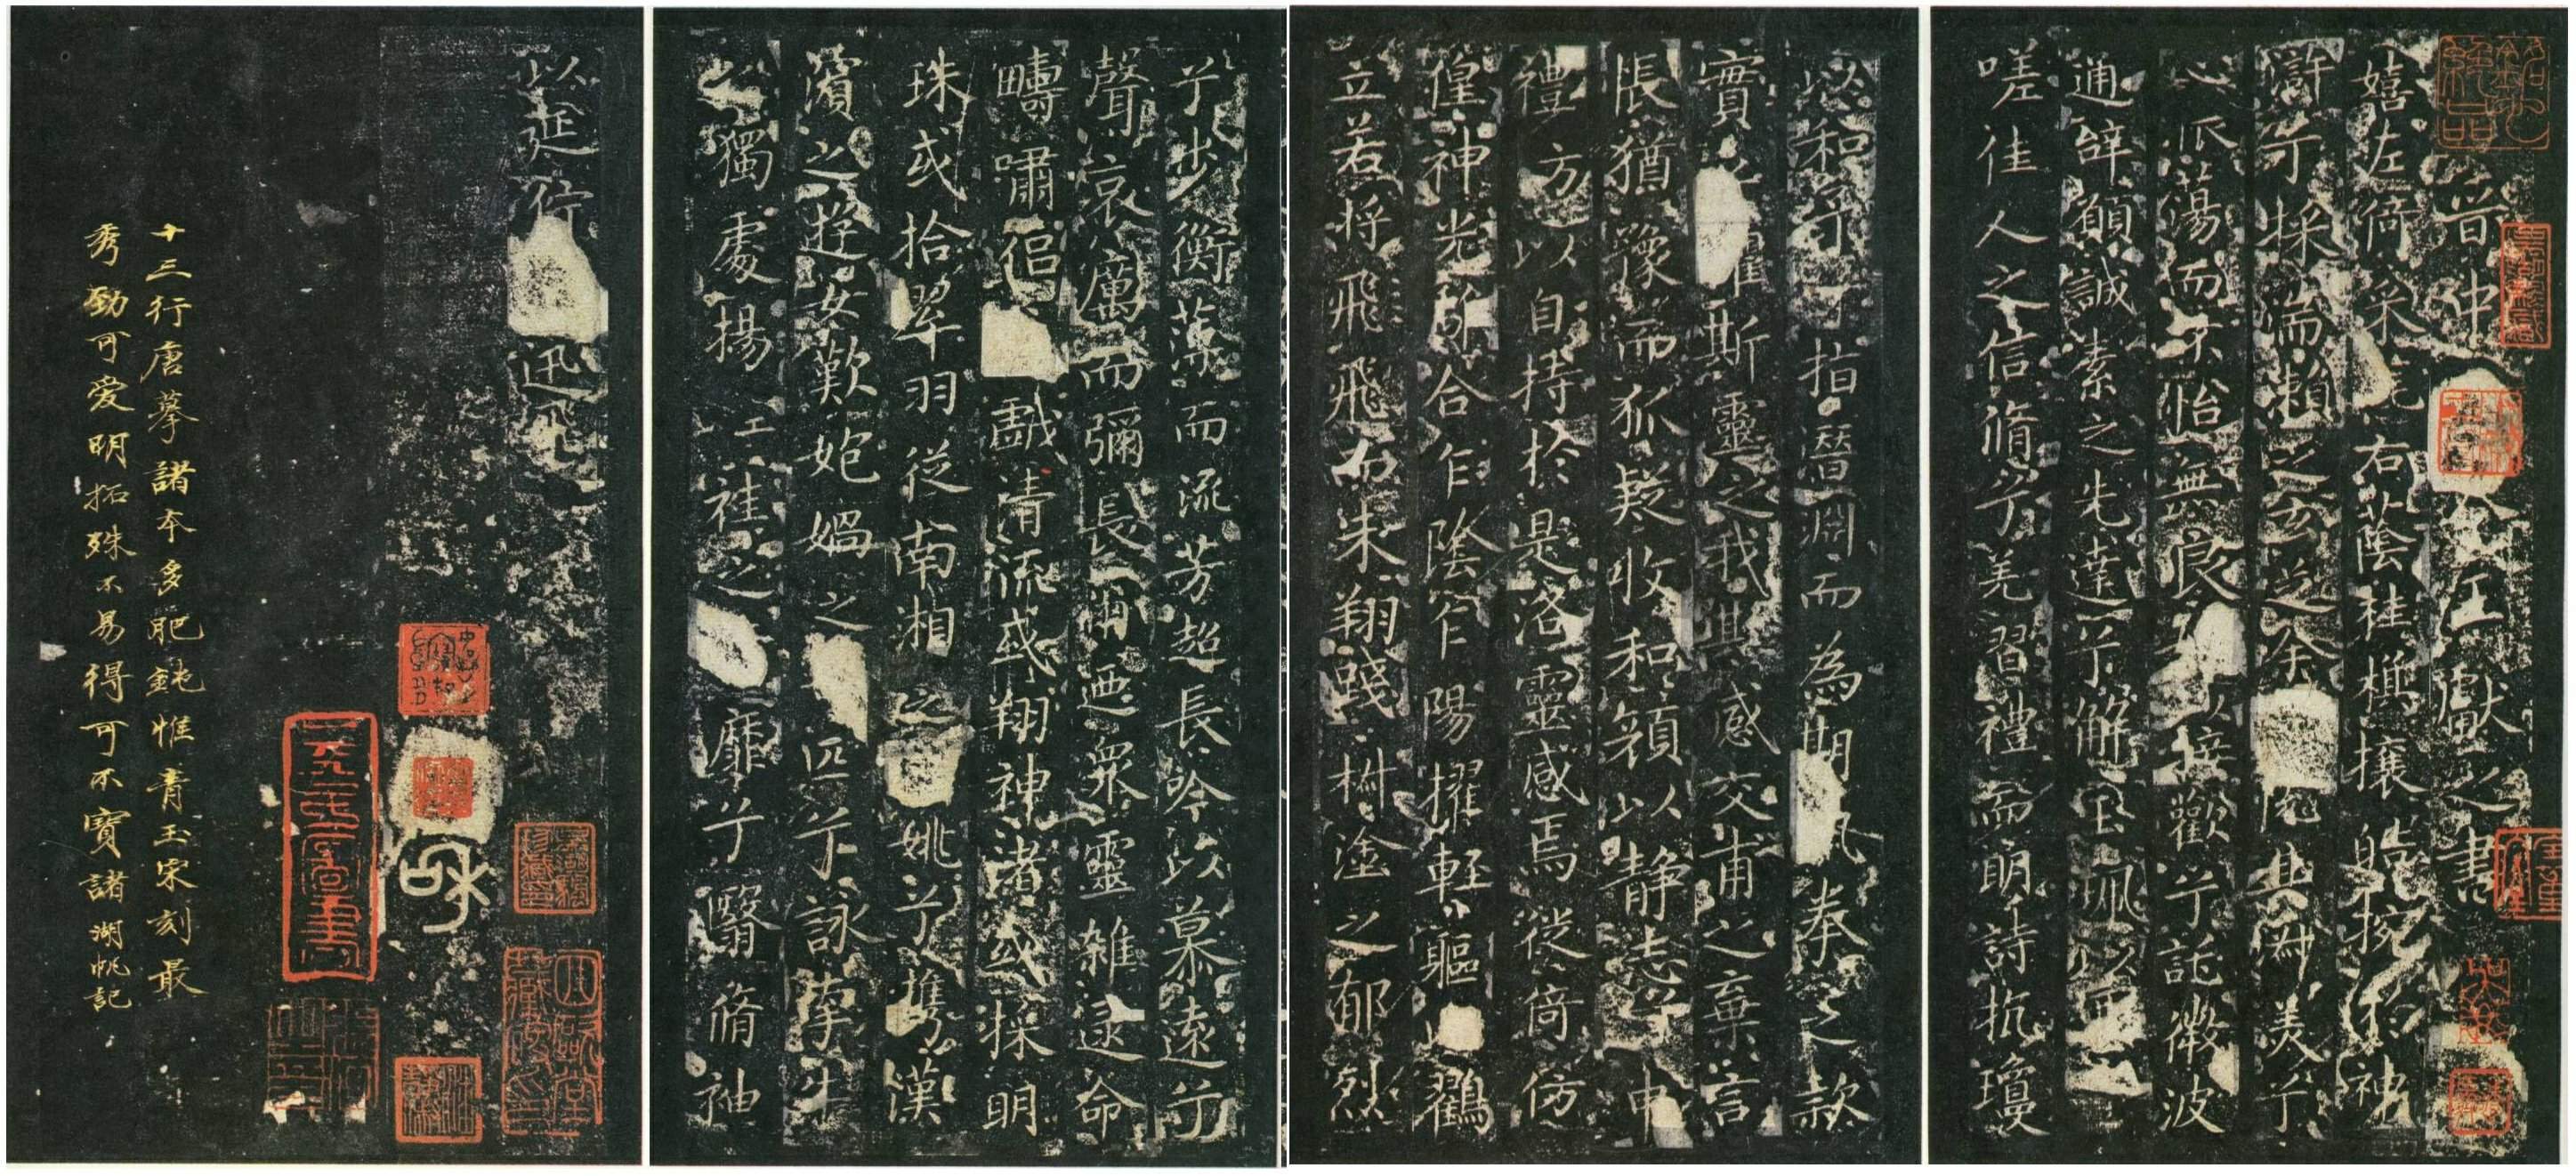 晋中王獻之書
嬉左倚采旄右蔭桂旗攘皓捥於神
滸兮採湍瀨之玄芝余悅其淑美兮
心振蕩而不怡無良以接歡兮託微波
通辭願誠素之先達兮解玉珮以要
嗟佳人之信脩兮羌習禮而明詩抗瓊
以和予兮指潛淵而為期拳之款
實之懼斯靈之我欺感交甫之棄言
悵猶豫而狐疑收和顏以静志兮申
禮方以自持於是洛靈感焉徙倚仿
偟神光離合乍陰乍陽擢輕軀鶴
立若將飛飛而未翔踐椒塗之郁烈
兮步衡薄而流芳超長吟以慕遠兮
聲哀厲而彌長爾迺衆靈雜遝命
疇嘯侶戲清流或翔神渚或採明
珠或拾翠羽從南湘之姚兮攜漢
濱之遊女歎匏媧之匹兮詠牽牛
之獨處揚袿之靡兮翳脩袖
以延佇迅飛
和
十三行唐摹諸本多肥鈍惟青玉宋刻最
秀勁可爱明拓殊不易得可不寶諸湖帆記